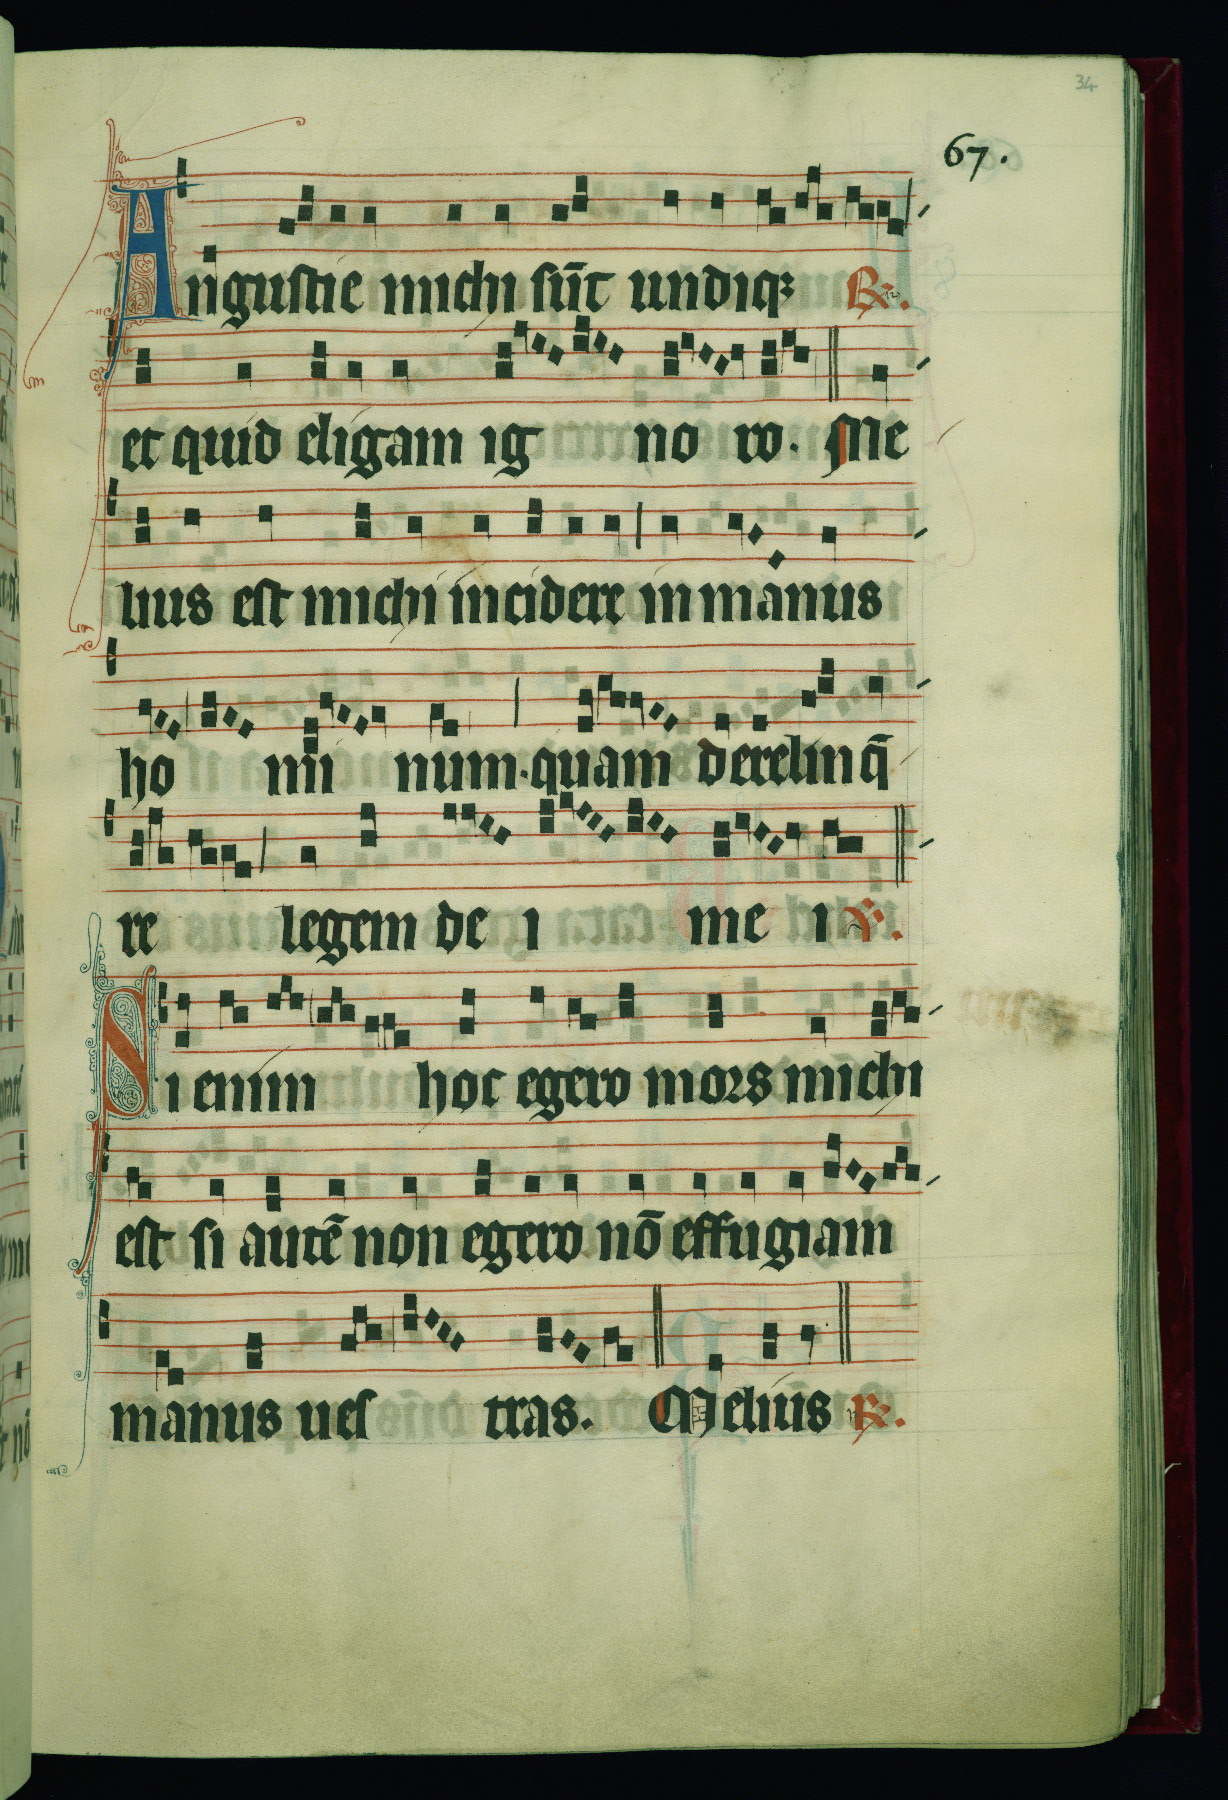 34
67.
Angustie michi sūt undiqꝫ ℟.
et quid eligam ig no ro. Me
lius est michi incidere in manus
ho mi num. quam derelinq̄
re legem de i me i ℣.
Si enim hoc egero mors michi
est si autē non egero nō effugiam
manus ues tras. Melius ℟.